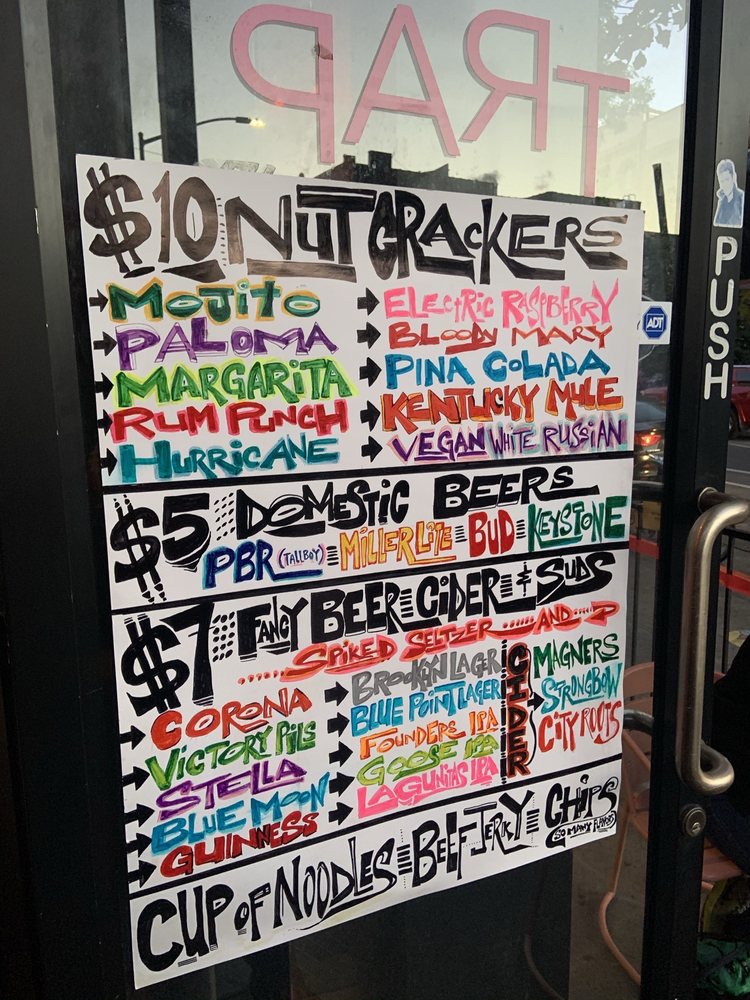 TRAP
$10 NUTCRACKERS
MOJITO
PALOMA
MARGARITA
RUM PUNCH
HURRICANE
ELECTRIC RASPBERRY
BLOODY MARY
PINA COLADA
KENTUCKY MULE
VEGAN WHITE RUSSIAN
$5 DOMESTIC BEERS
PBR (TALLBOY) MILLER LITE BUD KEYSTONE
$7 FANCY BEER CIDER & SUDS
SPIKED SELTZER AND
CORONA
VICTORY PILS
STELLA
BLUE MOON
GUINNESS
BROOKLYN LAGER
BLUE POINT LAGER
FOUNDERS IPA
GOOSE IPA
LAGUNITAS IPA
CIDER
MAGNERS
STRONGBOW
CITY ROOTS
CUP OF NOODLES BEEF JERKY CHIPS
(SO MANY FLAVORS)
PUSH
ADT